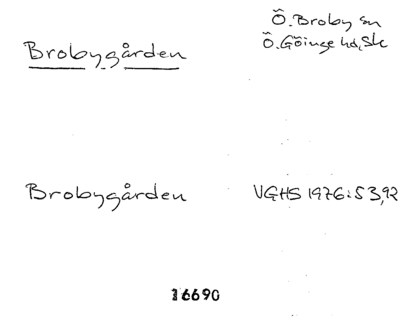 Ö. Broby sn
Brobygården
Ö. Göinge hd, Sk
Brobygården
VGHS 1976:53,92
16690